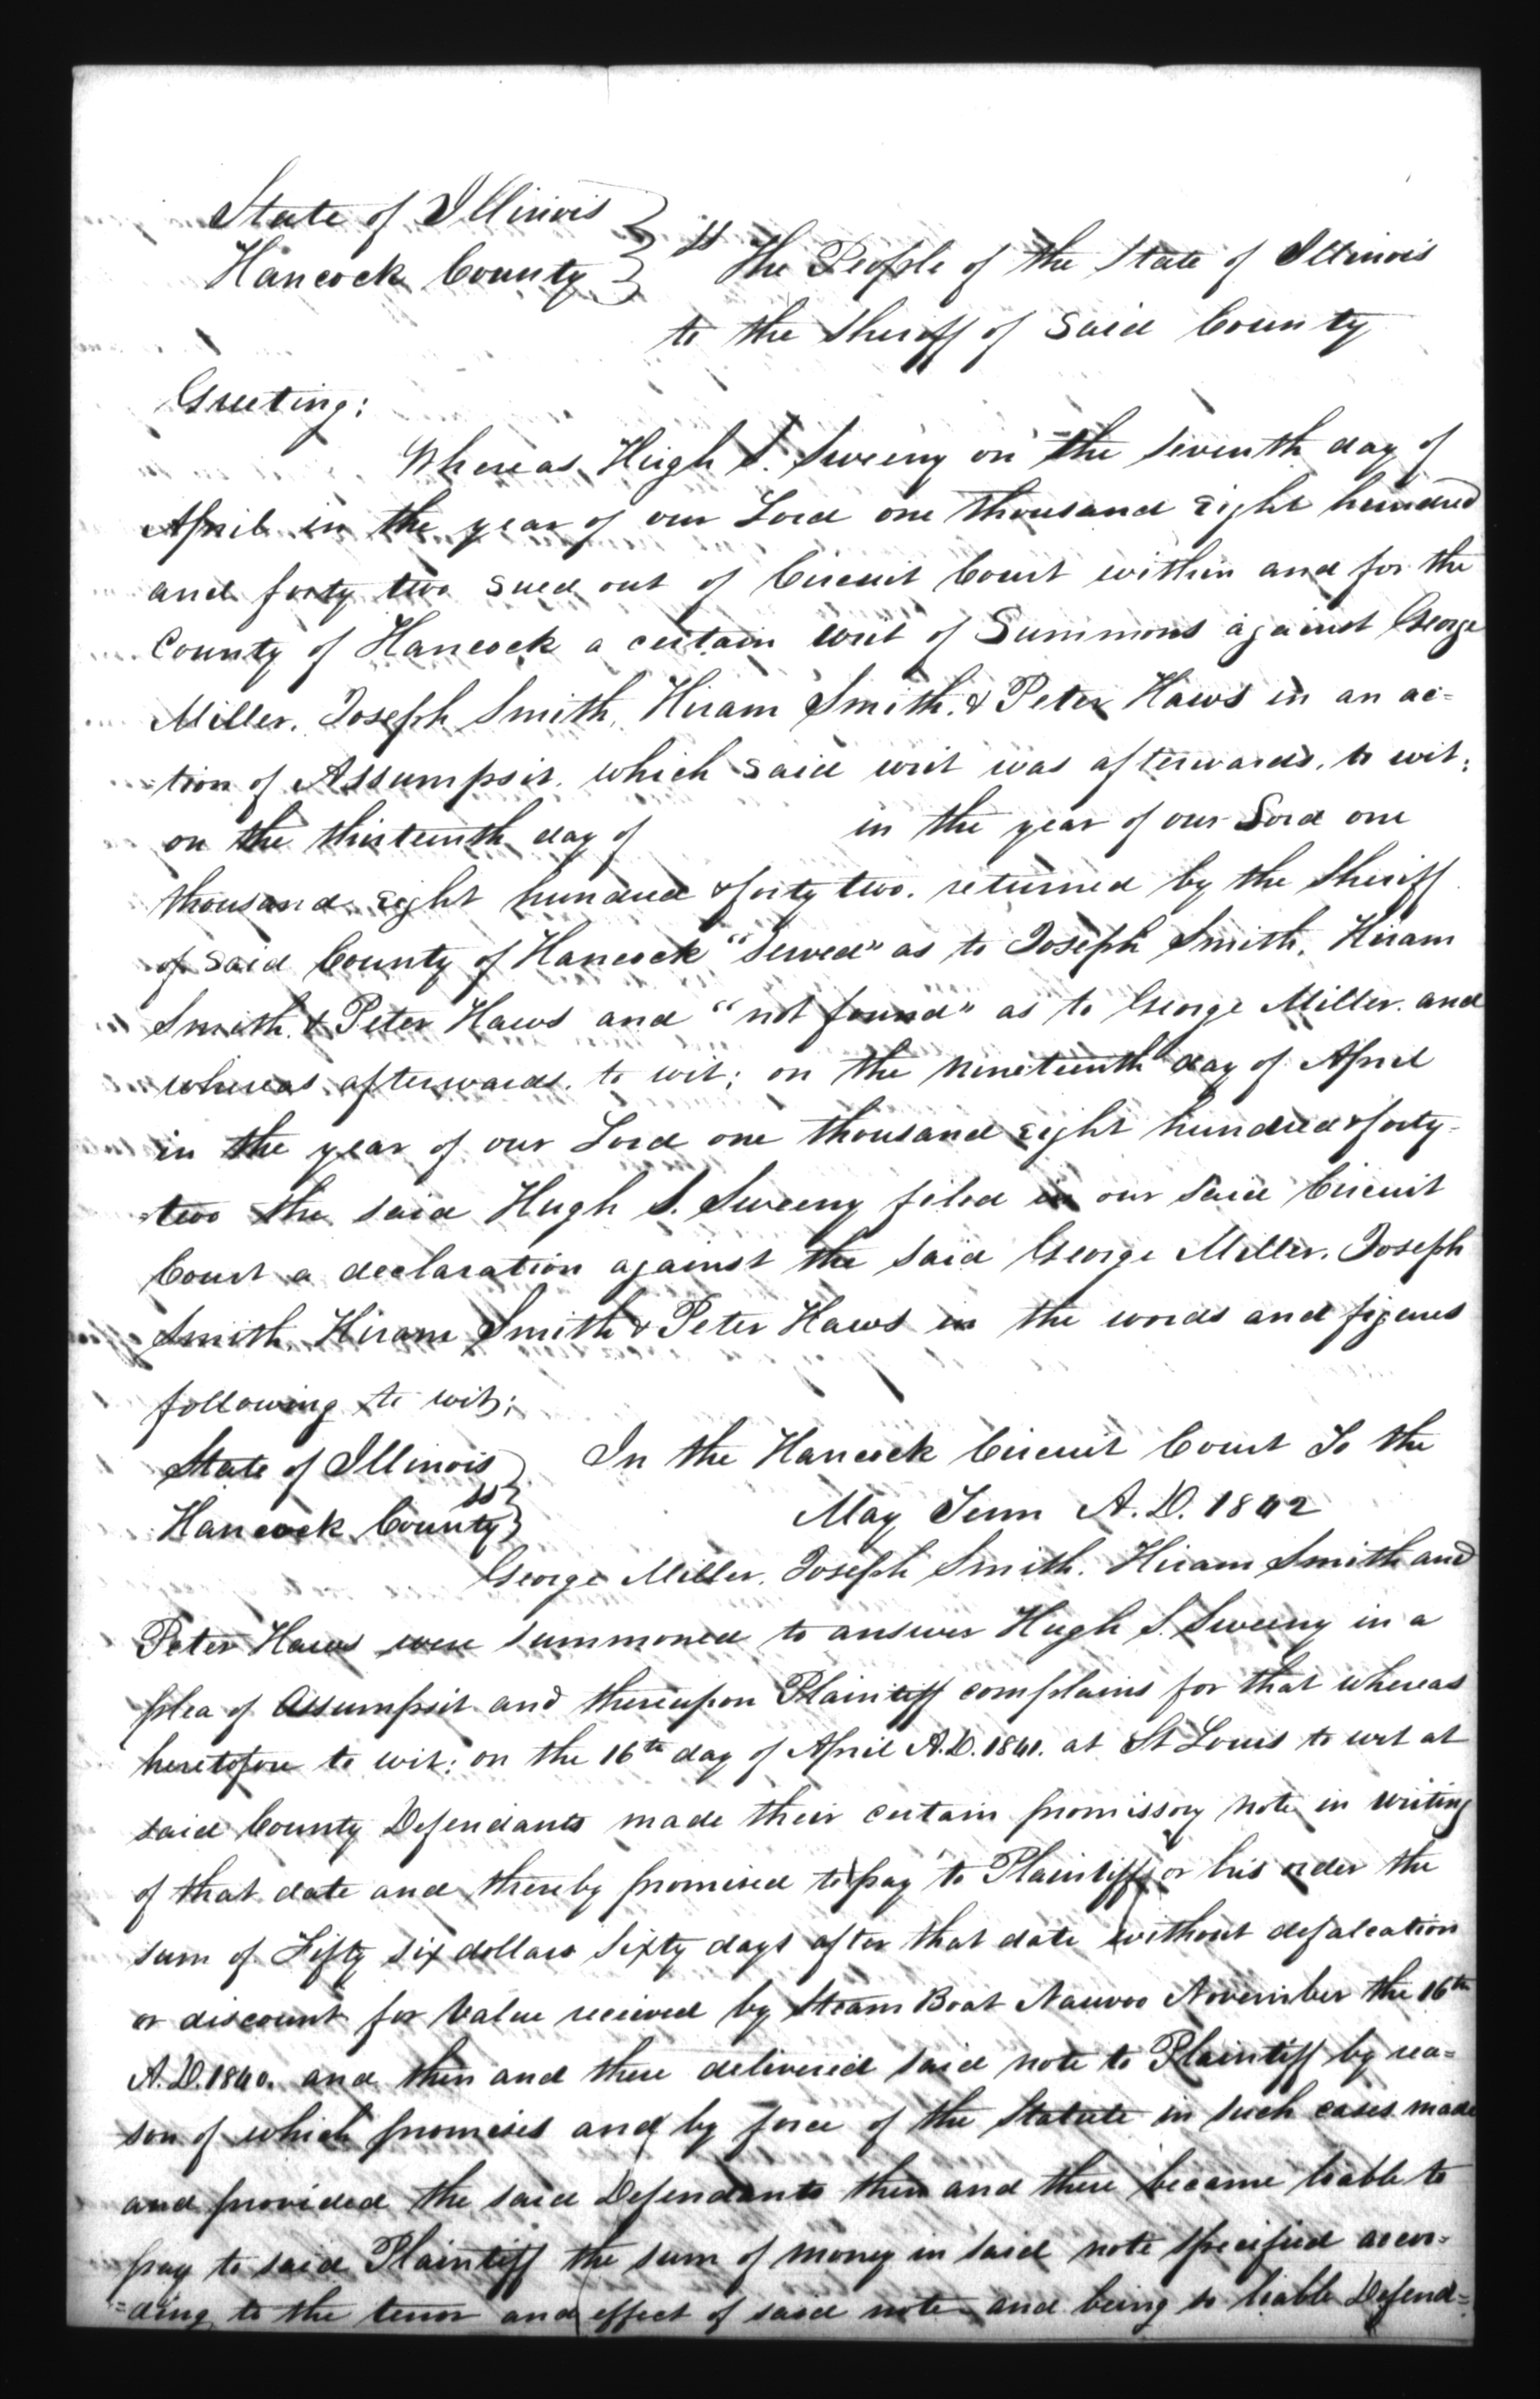 State of Illinois } ss The People of the State of Illinois
Hancock County }
to the Sheriff of said County
Greeting:
Whereas Hugh S. Sweeny on the seventh day of
April in the year of our Lord one thousand Eight hundred
and forty two sued out of Circuit Court within and for the
County of Hancock a certain writ of Summons against George
Miller, Joseph Smith, Hiram Smith, & Peter Haws in an ac=
tion of Assumpsit, which said writ was afterwards, to wit;
on the thirteenth day of in the year of our Lord one
thousand Eight hundred & forty two. returned by the Sheriff
of said County of Hancock "served" as to Joseph Smith, Hiram
Smith, & Peter Haws and "not found" as to George Miller. and
whereas afterwards, to wit; on the nineteenth day of April
in the year of our Lord one thousand eight hundred & forty-
=two the said Hugh S. Sweeny filed in our said Circuit
Court a declaration against the said George Miller, Joseph
Smith, Hiram Smith & Peter Haws in the words and figures
following to wit;
State of Illinois } In the Hancock Circuit Court To the
Hancock County ss }
May Term A.D. 1842
George Miller, Joseph Smith, Hiram Smith and
Peter Haws were summoned to answer Hugh S. Sweeny in a
plea of Assumpsit and thereupon Plaintiff complains for that whereas
heretofore to wit; on the 16th day of April A.D. 1841. at St Louis to wit at
said County Defendants made their certain promissory note in writing
of that date and thereby promised to pay to Plaintiff or his order the
sum of Fifty six dollars sixty days after that date without defalcation
or discount for value received by Steam Boat Nauvoo November the 16th
A.D. 1840. and then and there delivered said note to Plaintiff by rea=
son of which promises and by force of the Statute in such cases made
and provided the said Defendants then and there became liable to
pay to said Plaintiff the sum of money in said note specified accor=
=ding to the tenor and effect of said note and being so liable Defend=